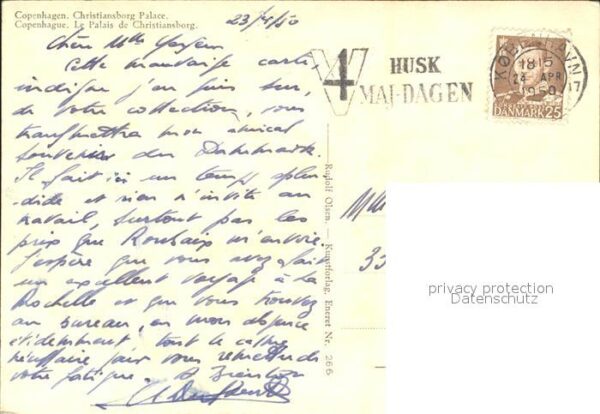 Copenhagen. Christiansborg Palace.
Copenhague. Le Palais de Christiansborg.
23/4/50
Chère Mlle
Cette mauvaise carte,
indigne j'en suis sur,
de votre collection, vous
transmettra mon amical
souvenir du Danemark.
Il fait ici un temps splen-
dide et rien n'invite au
travail, surtout pas les
prix que Roubaix m'envoie.
J'espère que vous avez fait
un excellent voyage à La
Rochelle et que vous trouvez
au bureau, en mon absence
évidemment, tout le calme
nécessaire pour vous remettre de
votre fatigue. A bientôt
HUSK
4
MAJ-DAGEN
KØBENHAVN
1815
24 APR
1950
17
DANMARK 25
Rudolf Olsen. — Kunstforlag. Eneret Nr. 266
Mlle
33
privacy protection
Datenschutz